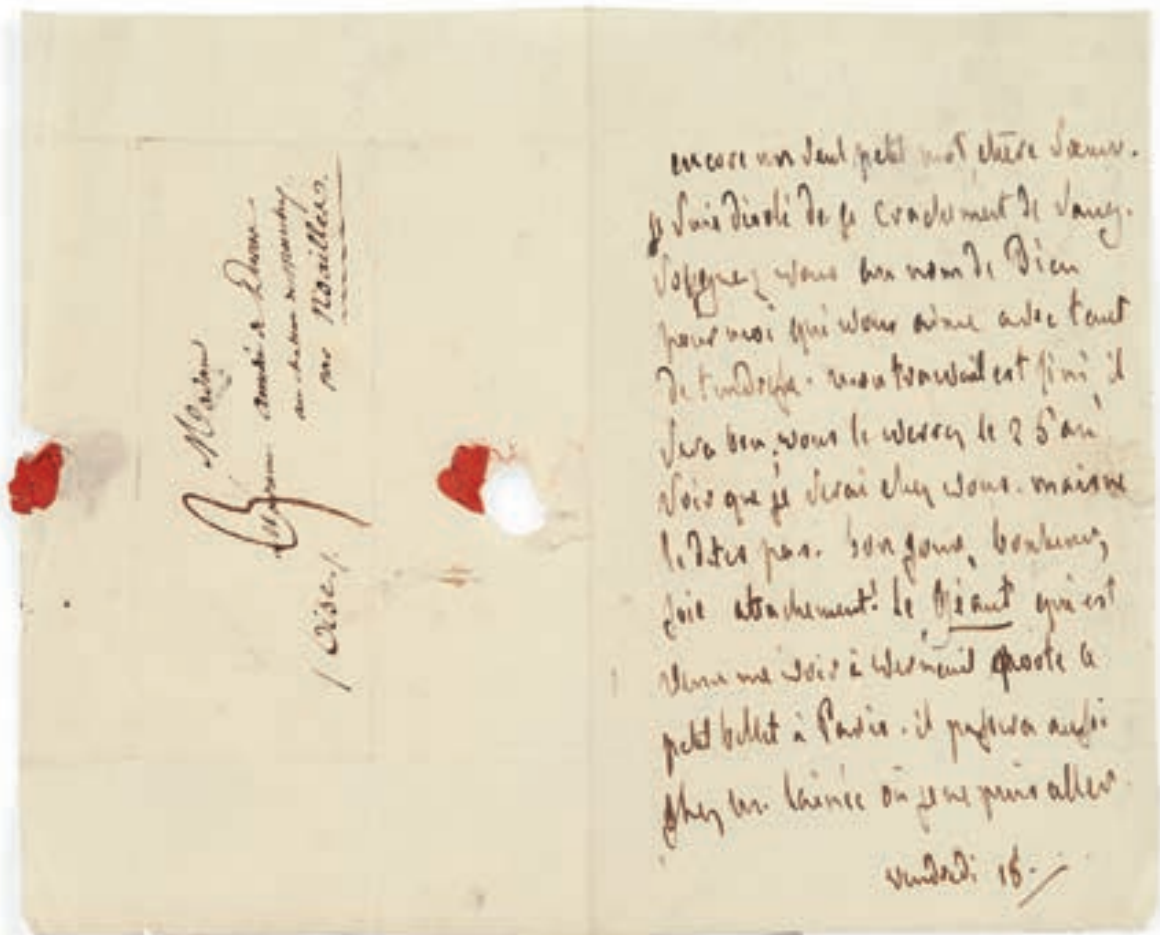 Madame
Madame
au chateau
par Noailles.
(Oise)
encore un seul petit mot, chère Sœur.
je suis désolé de ce crachement de sang.
Soignez vous au nom de Dieu
pour moi qui vous aime avec tant
de tendresse. mon travail est fini il
sera bon, vous le verrez le 25 au
soir que je serai chez vous. mais ne
le dites pas. bonjour, bonheur,
joie attachement! Le Géant qui est
venu me voir à Verneuil porte ce
petit billet à Paris. il passera aussi
chez où je ne puis aller.
vendredi 18.